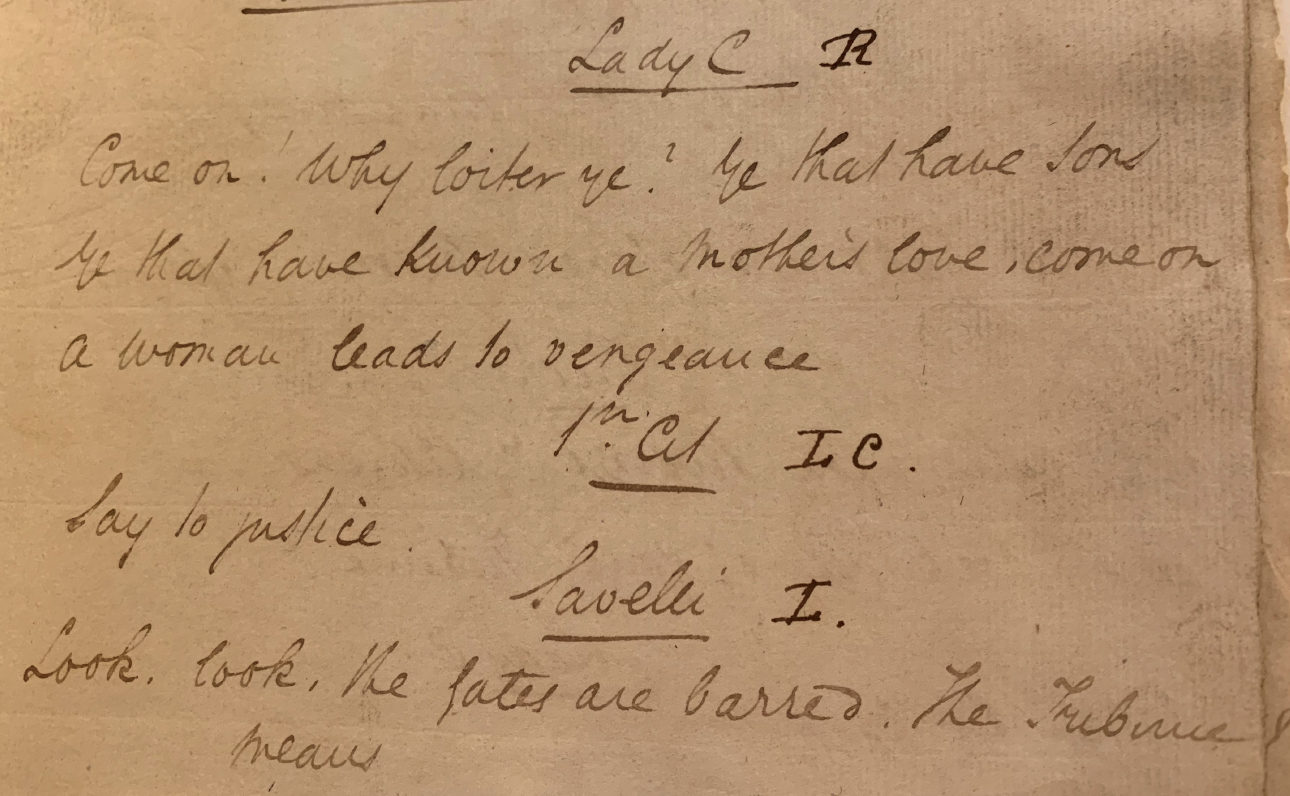 Lady C R
Come on! Why loiter ye? Ye that have sons
Ye that have known a mother's love, come on
A woman leads to vengeance
Cit L C.
Say to justice.
Savelli L.
Look, look, the gates are barred. The Tribune
means